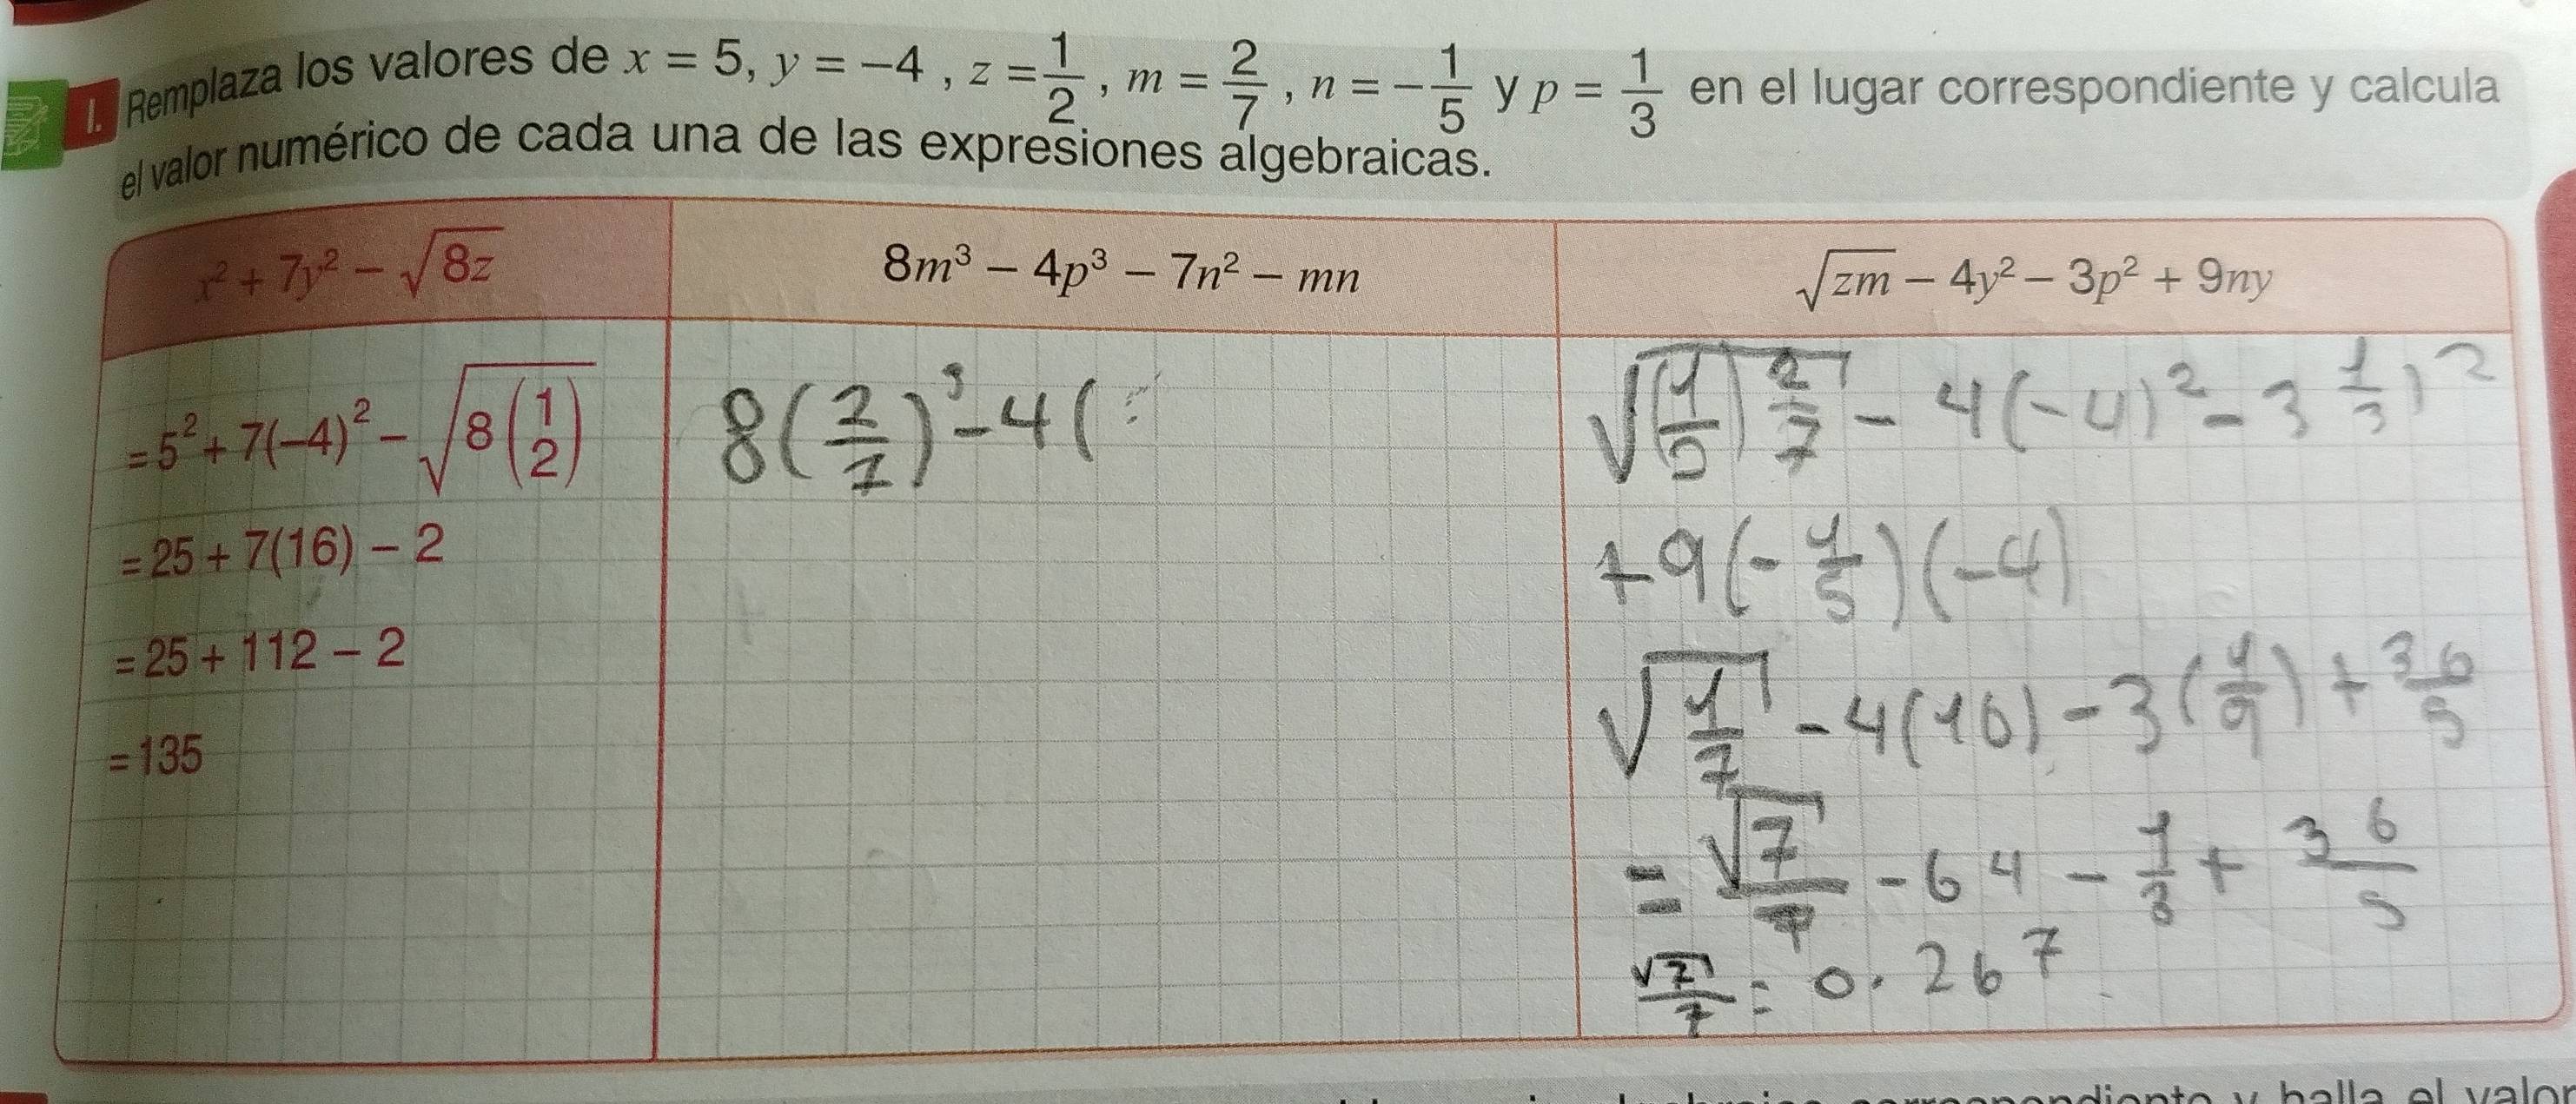 I. Remplaza los valores de x = 5, y = −4 , z = 1/2 , m = 2/7 , n = −1/5 y p = 1/3 en el lugar correspondiente y calcula
el valor numérico de cada una de las expresiones algebraicas.
x² + 7y² − √8z
= 5² + 7(−4)² − √8(1/2)
= 25 + 7(16) − 2
= 25 + 112 − 2
= 135
8m³ − 4p³ − 7n² − mn
8(2/7)³ − 4(
√zm − 4y² − 3p² + 9ny
√(1/2) 2/7 − 4(−4)² − 3 1/3)²
+9(−1/5)(−4)
√1/7 − 4(16) − 3(1/9) + 36/5
= √7/7 − 64 − 1/3 + 36/5
√7/7 = 0.267
y halla el valor